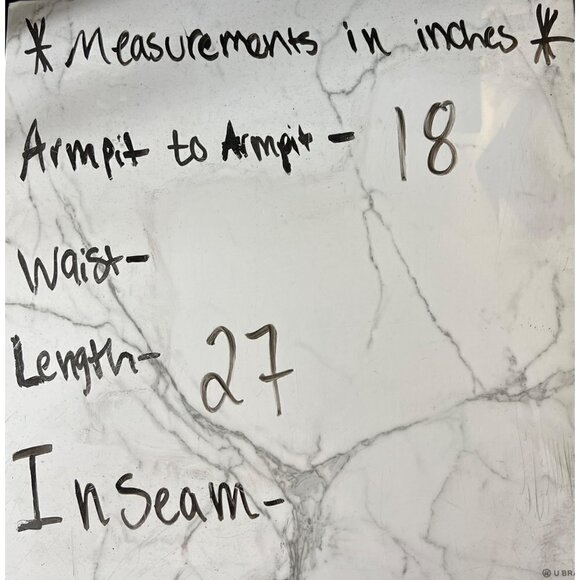 * Measurements in inches *
Armpit to Armpit - 18
Waist-
Length- 27
Inseam-
® U BRA